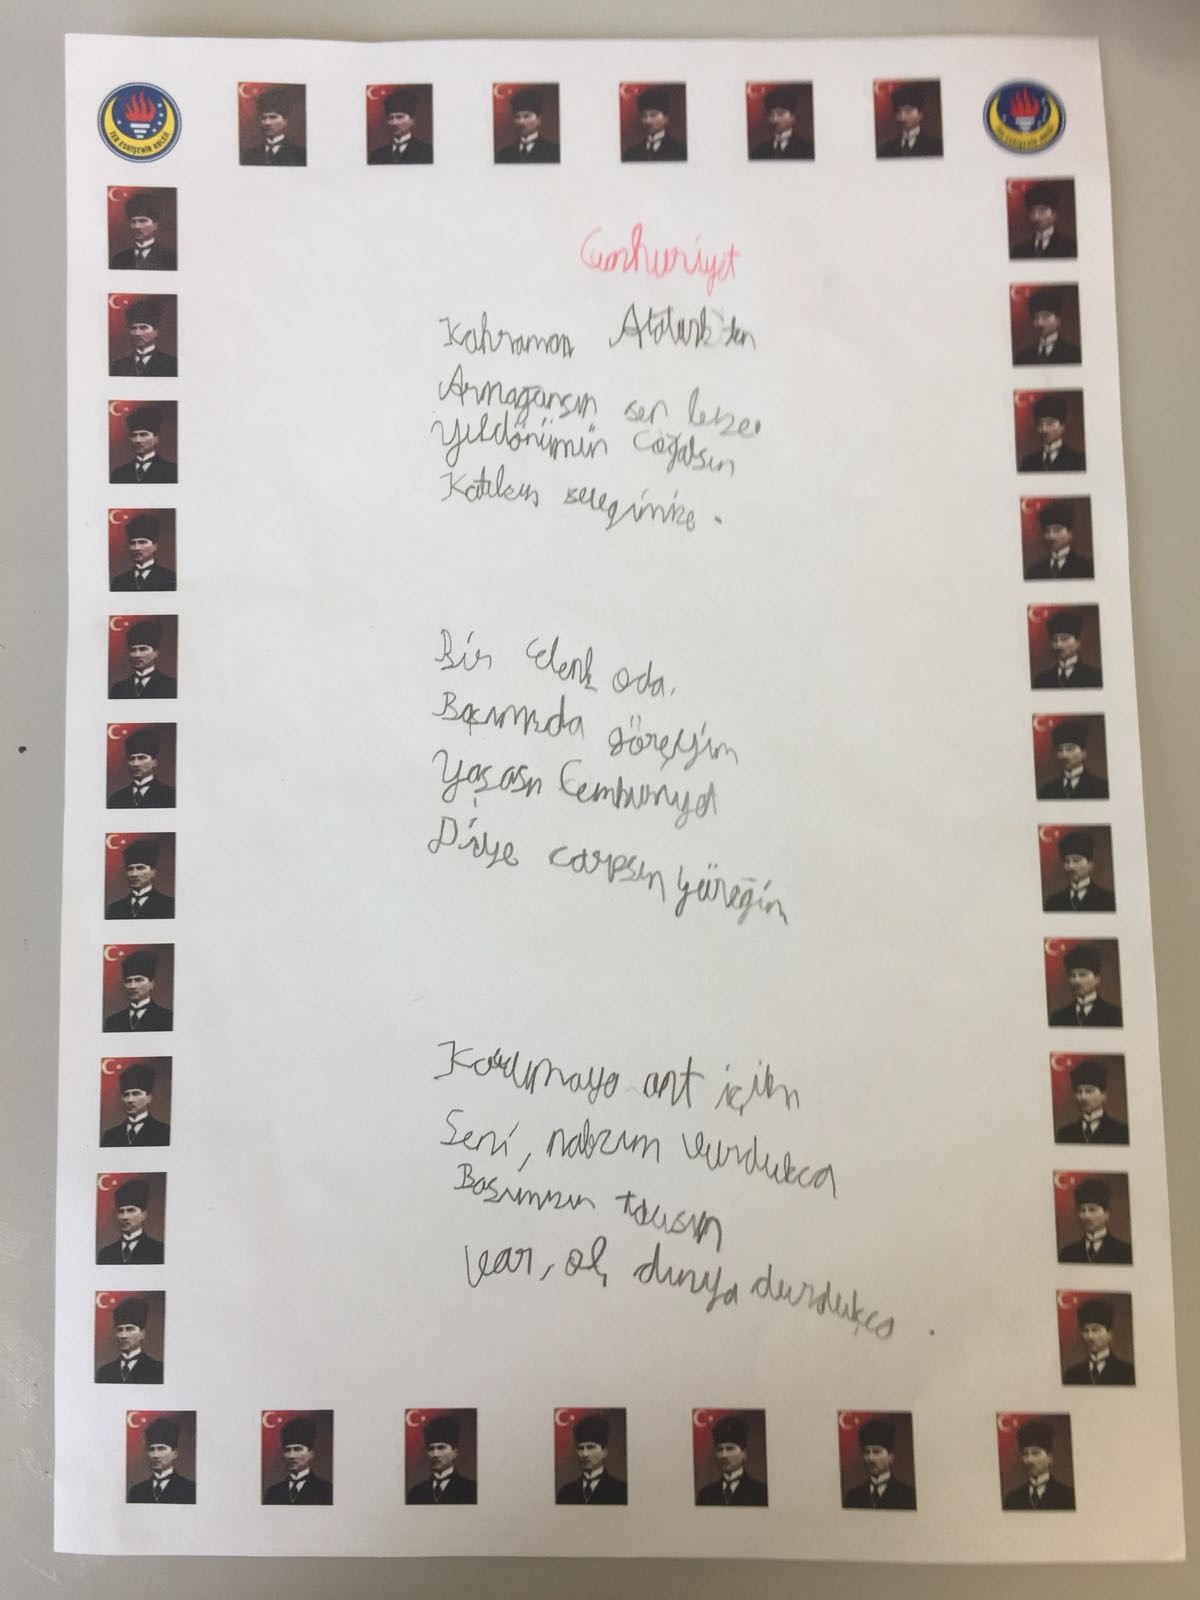 TED ESKİŞEHİR KOLEJİ
TED ESKİŞEHİR KOLEJİ
Cumhuriyet
Kahraman Atatürk'ten
Armağansın sen bize.
Yıldönümün coğalsın
Katılsın sevgimize.
Bir celenk oda.
Başımızda göreyim
Yaşasın Cumhuriyet
Diye carpsın yüreğim
Korumaya ant içtim
Seni, nabzım vurdukca
Başımızın tacısın
var, ol, dünya durdukça.